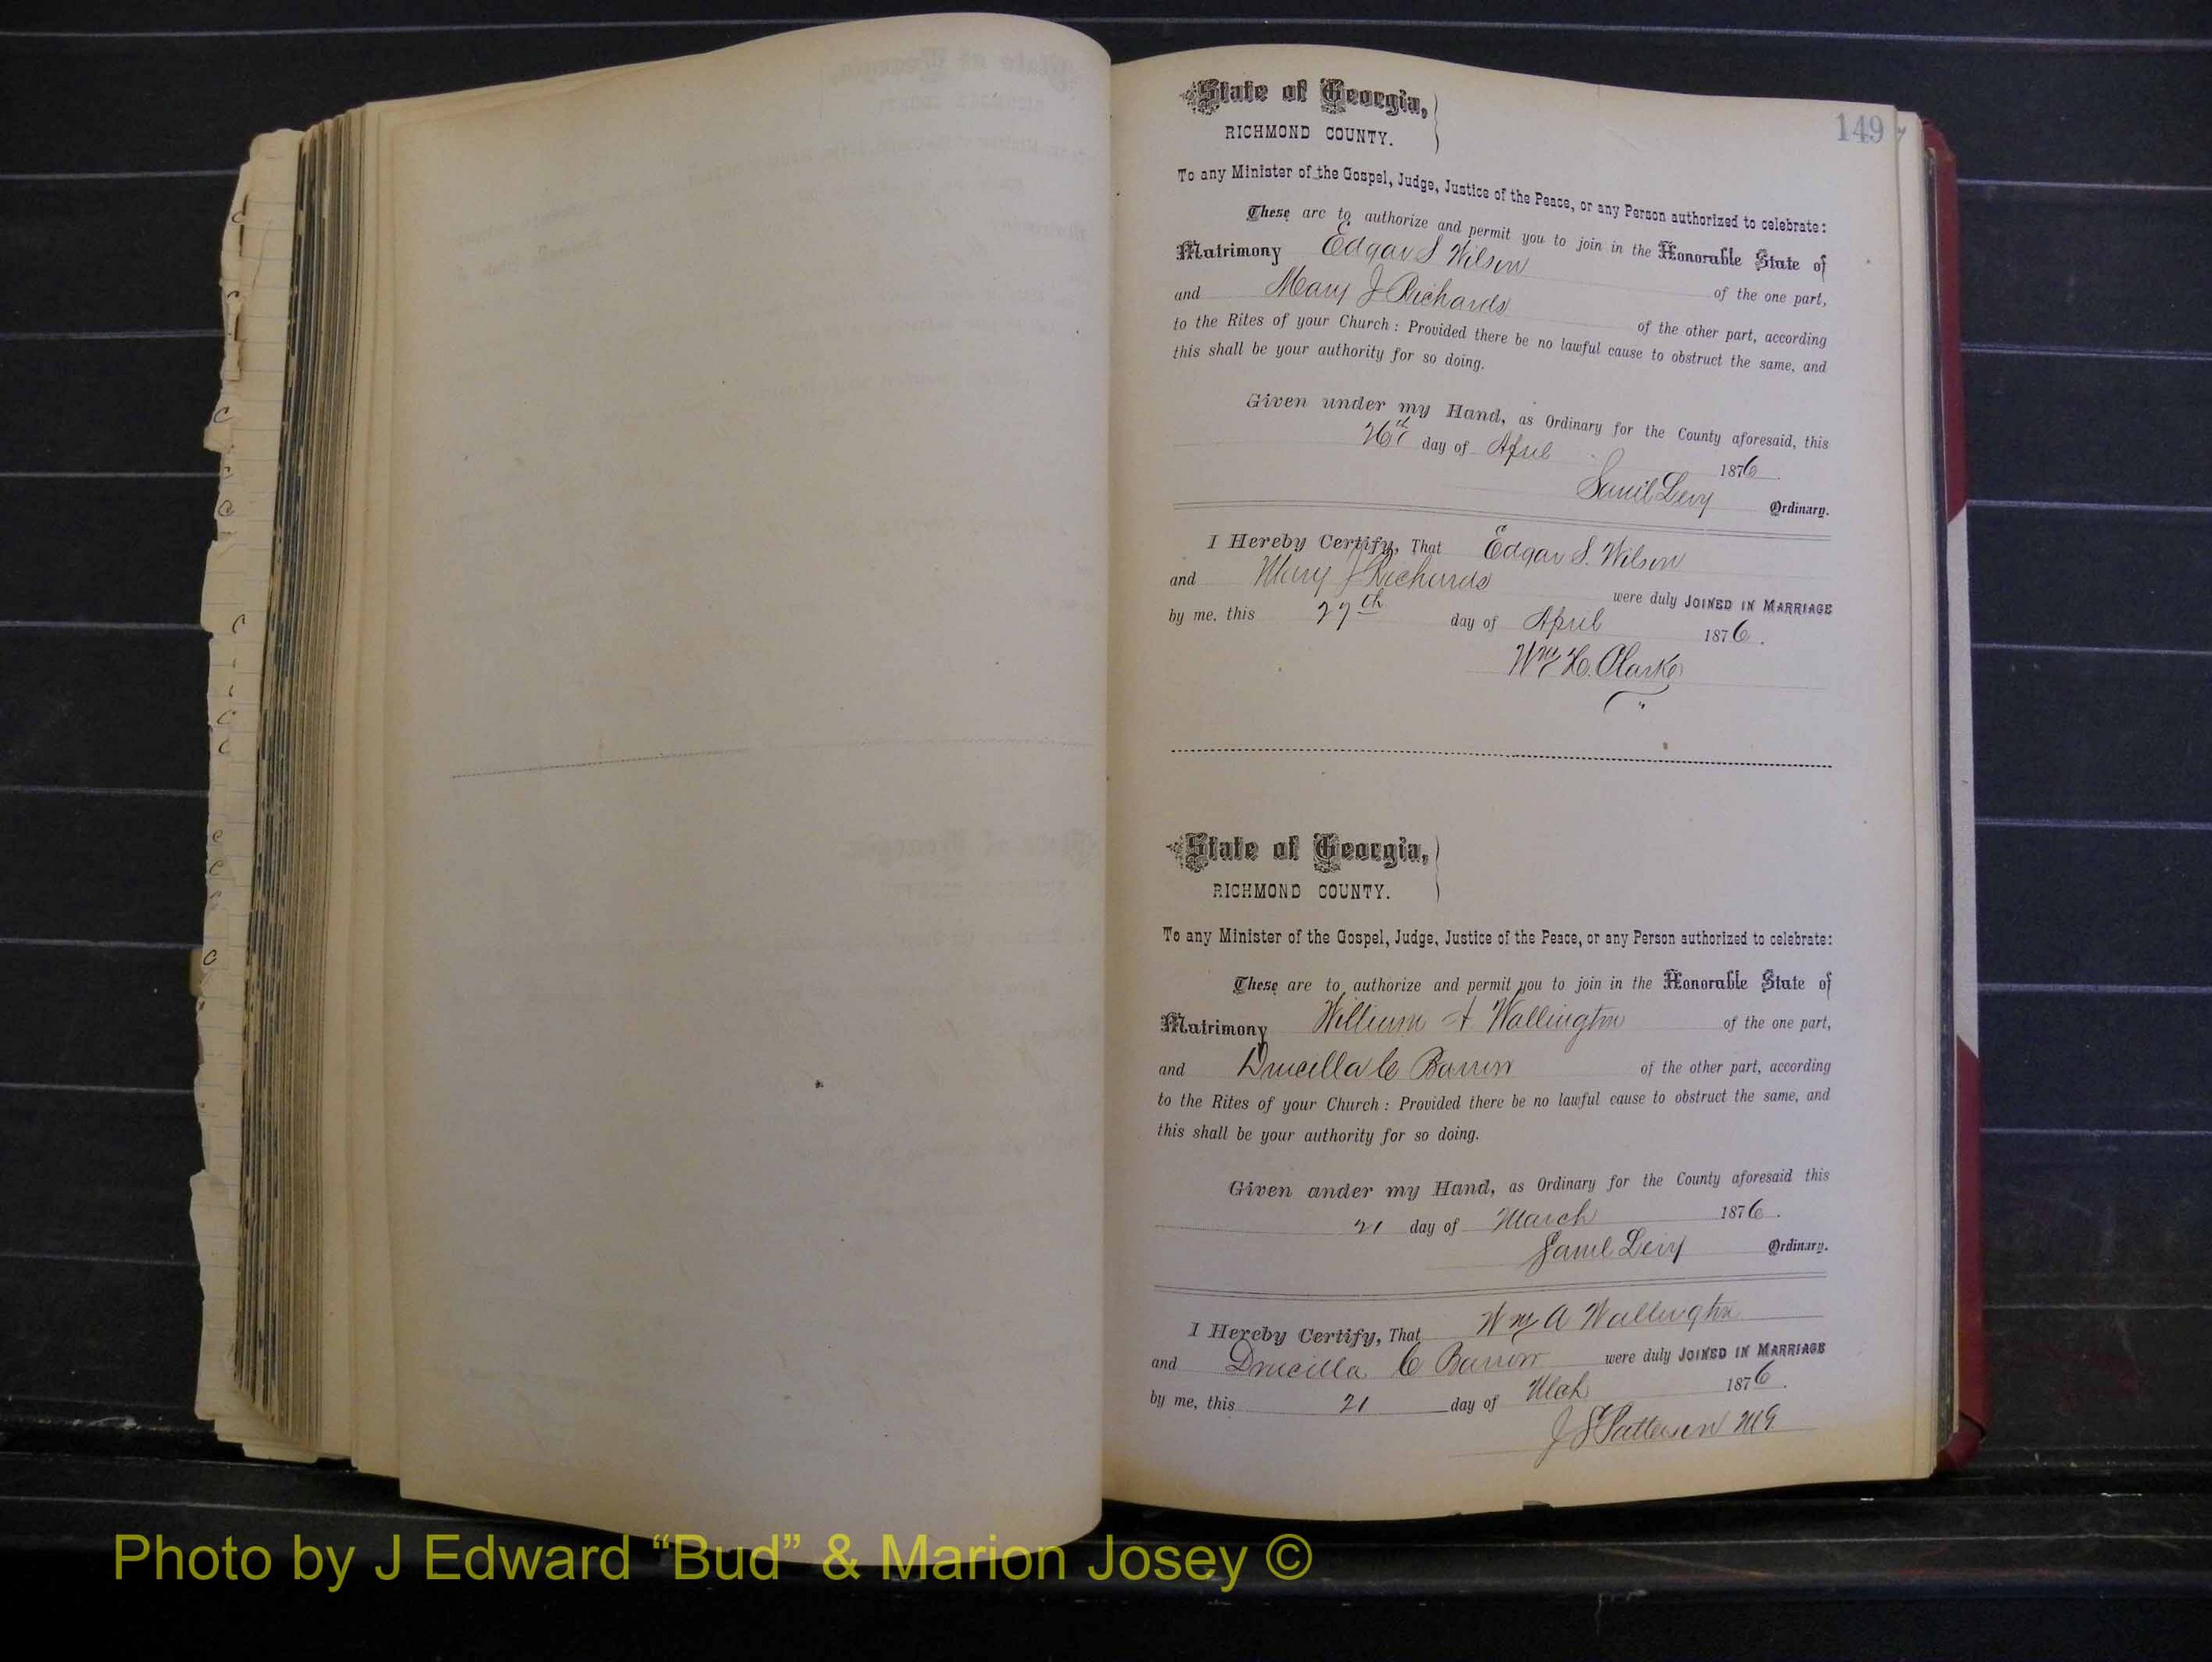 149
State of Georgia,
RICHMOND COUNTY.
To any Minister of the Gospel, Judge, Justice of the Peace, or any Person authorized to celebrate:
These are to authorize and permit you to join in the Honorable State of
Matrimony Edgar S Wilson of the one part,
and Mary J Richards of the other part, according
to the Rites of your Church: Provided there be no lawful cause to obstruct the same, and
this shall be your authority for so doing.
Given under my Hand, as Ordinary for the County aforesaid, this
26th day of April 1876
Saml Levy Ordinary.
I Hereby Certify, That Edgar S. Wilson
and Mary J Richards were duly JOINED IN MARRIAGE
by me, this 27th day of April 1876.
Wm H. Clarke
State of Georgia,
RICHMOND COUNTY.
To any Minister of the Gospel, Judge, Justice of the Peace, or any Person authorized to celebrate:
These are to authorize and permit you to join in the Honorable State of
Matrimony William A Wallington of the one part,
and Drucilla C Barrow of the other part, according
to the Rites of your Church: Provided there be no lawful cause to obstruct the same, and
this shall be your authority for so doing.
Given under my Hand, as Ordinary for the County aforesaid this
21 day of March 1876.
Saml Levy Ordinary.
I Hereby Certify, That Wm A Wallington
and Drucilla C Barrow were duly JOINED IN MARRIAGE
by me, this 21 day of Mch 1876.
J S Patterson MG.
Photo by J Edward “Bud” & Marion Josey ©